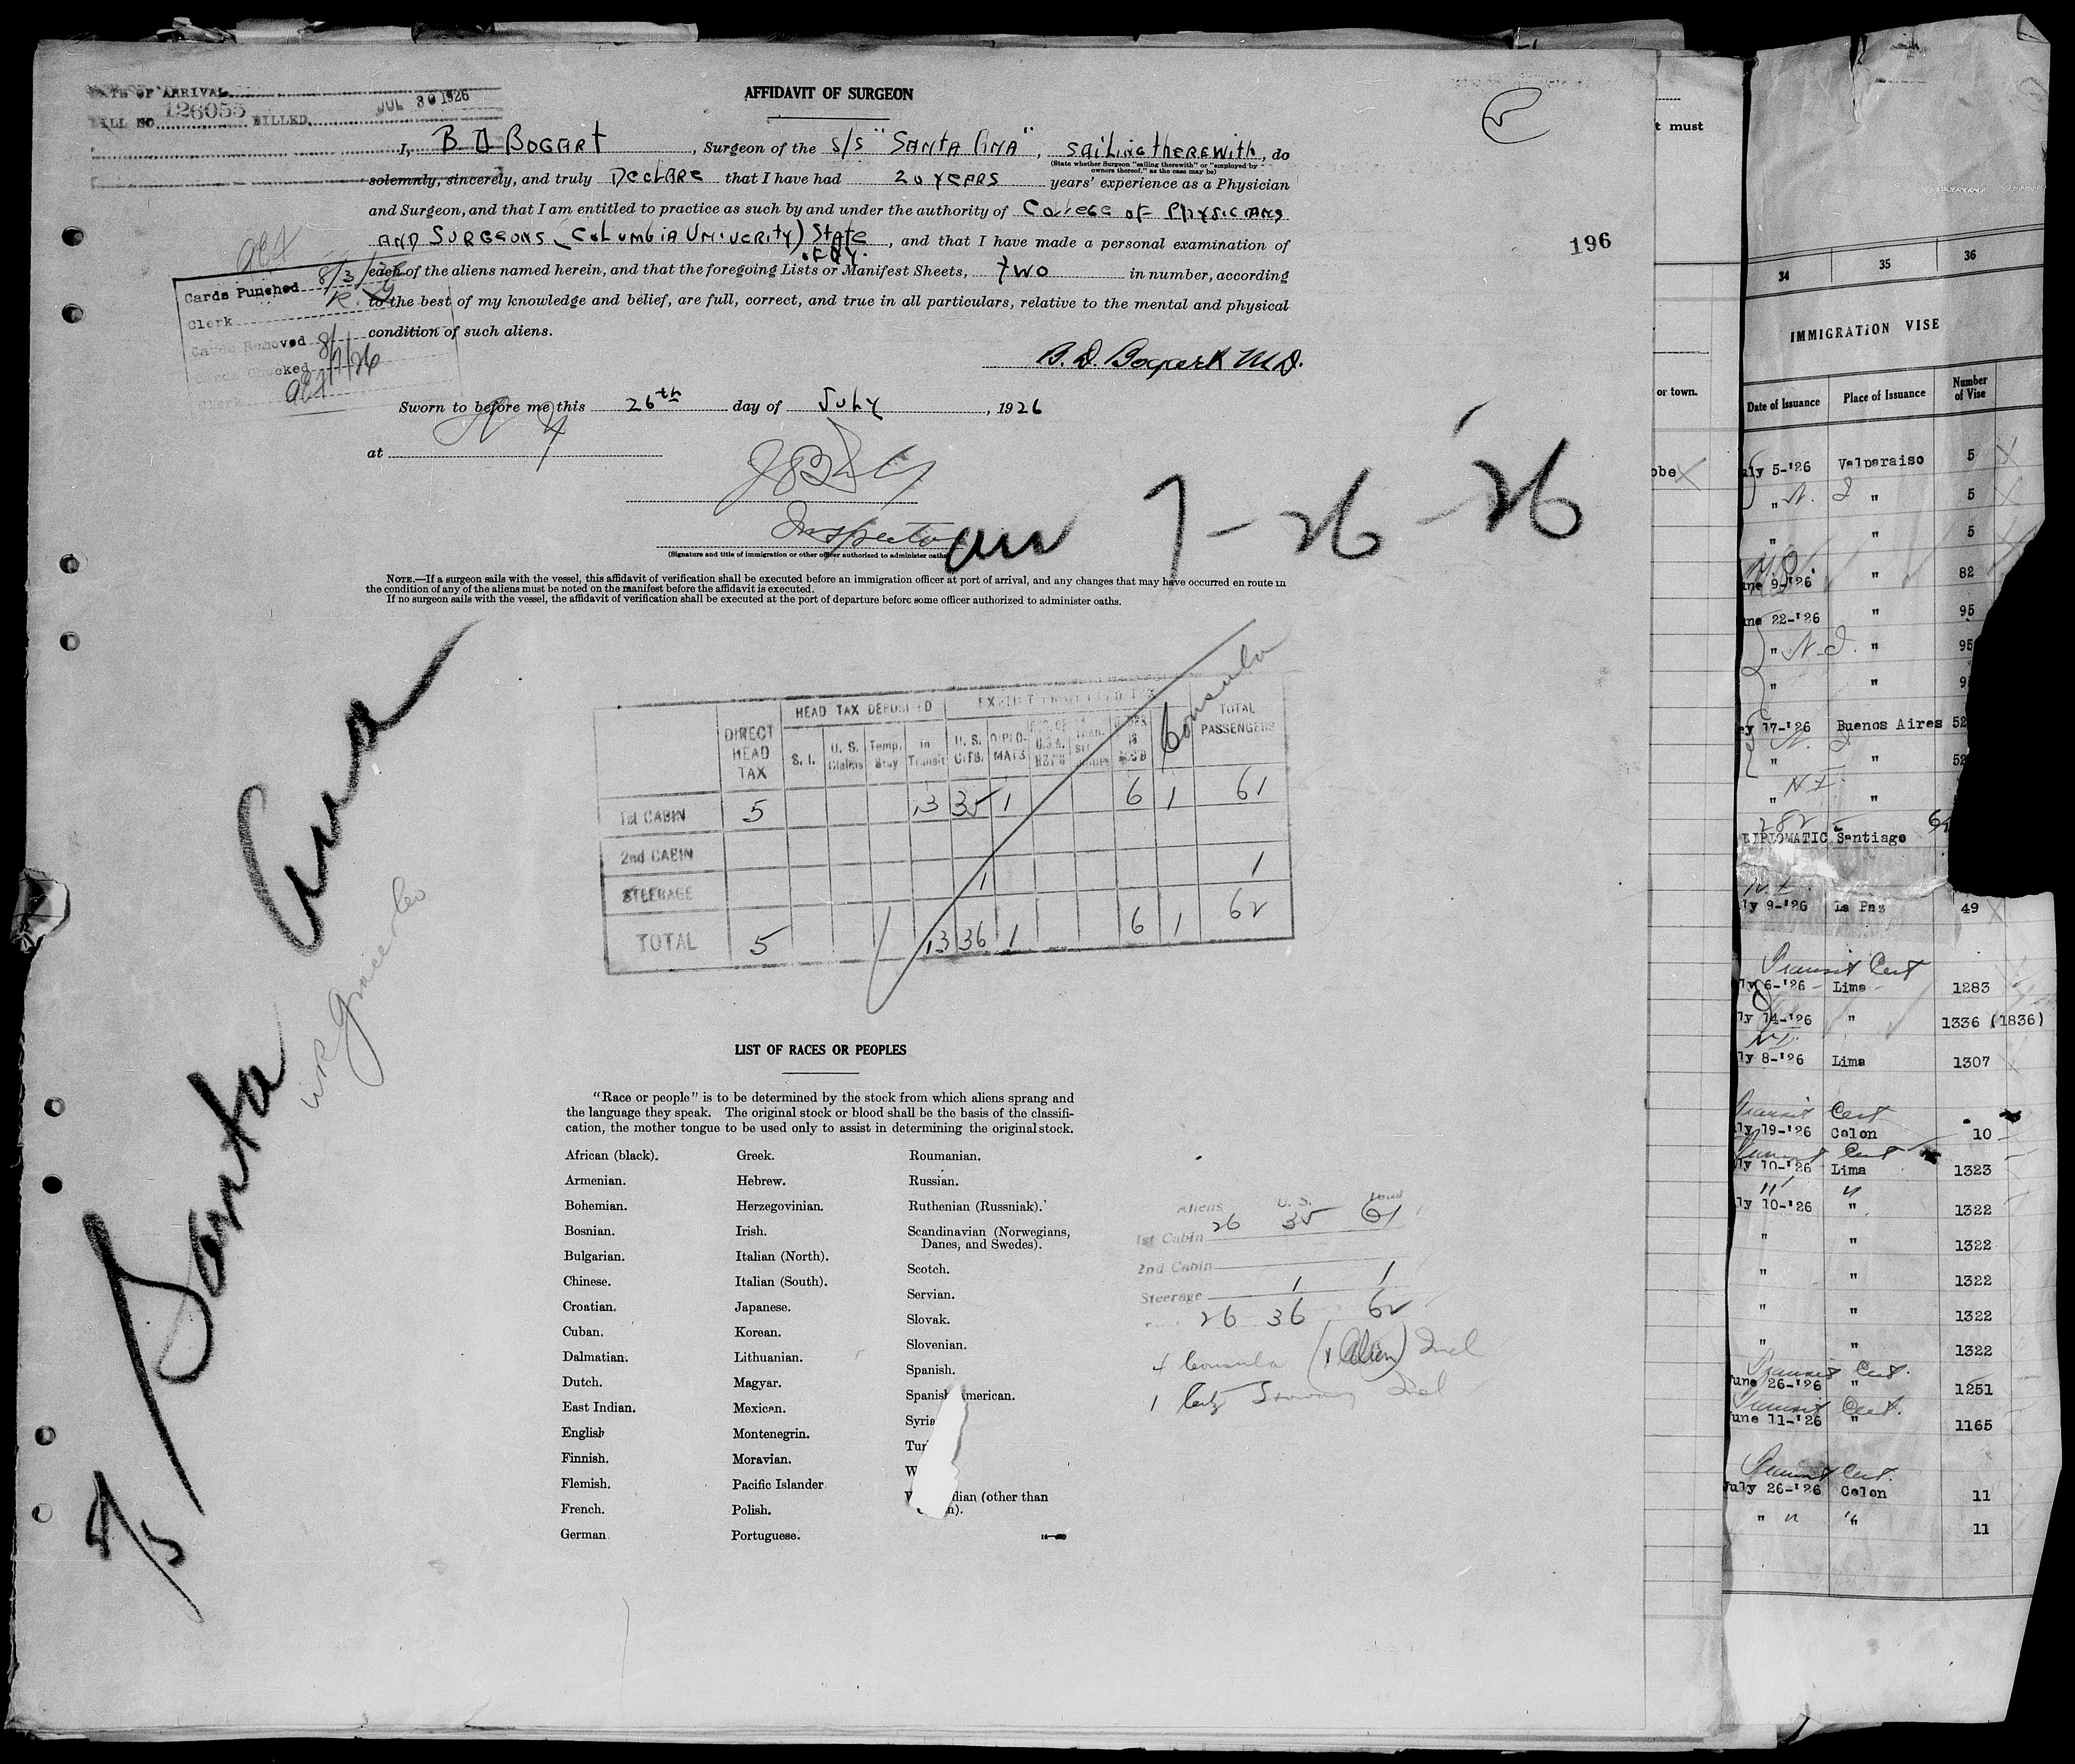 DATE OF ARRIVAL
BILL NO. 126055 BILLED. JUL 30 1926
AFFIDAVIT OF SURGEON
I, B D BOGART, Surgeon of the S/S "SANTA ANA", SAILING THEREWITH, do
(State whether Surgeon "sailing therewith" or "employed by owners thereof," as the case may be)
solemnly, sincerely, and truly DECLARE that I have had 20 YEARS years' experience as a Physician
and Surgeon, and that I am entitled to practice as such by and under the authority of COLLEGE OF PHYSICIANS
AND SURGEONS (COLUMBIA UNIVERITY) STATE, and that I have made a personal examination of
OF N.Y.
each of the aliens named herein, and that the foregoing Lists or Manifest Sheets, TWO in number, according
to the best of my knowledge and belief, are full, correct, and true in all particulars, relative to the mental and physical
condition of such aliens.
B. D. Bogart M.D.
196
Cards Punched 8/3/26
Clerk
Cards Removed
Cards Checked
Clerk
Sworn to before me this 26th day of JULY, 1926
at N Y
Inspector
(Signature and title of immigration or other officer authorized to administer oaths)
arr 7-26-26
NOTE.—If a surgeon sails with the vessel, this affidavit of verification shall be executed before an immigration officer at port of arrival, and any changes that may have occurred en route in
the condition of any of the aliens must be noted on the manifest before the affidavit is executed.
If no surgeon sails with the vessel, the affidavit of verification shall be executed at the port of departure before some officer authorized to administer oaths.
Santa Ana
WR Grace Co
4/5
DIRECT HEAD TAX HEAD TAX DEPOSITED S. I. U. S. Claims Temp. Stay In Transit U. S. CITS. DIPLOMATS Consula TOTAL PASSENGERS
1st CABIN 5 13 35 1 6 1 61
2nd CABIN
STEERAGE 1 1
TOTAL 5 13 36 1 6 1 62
LIST OF RACES OR PEOPLES
"Race or people" is to be determined by the stock from which aliens sprang and
the language they speak. The original stock or blood shall be the basis of the classifi-
cation, the mother tongue to be used only to assist in determining the original stock.
African (black).
Armenian.
Bohemian.
Bosnian.
Bulgarian.
Chinese.
Croatian.
Cuban.
Dalmatian.
Dutch.
East Indian.
English
Finnish.
Flemish.
French.
German
Greek.
Hebrew.
Herzegovinian.
Irish.
Italian (North).
Italian (South).
Japanese.
Korean.
Lithuanian.
Magyar.
Mexican.
Montenegrin.
Moravian.
Pacific Islander
Polish.
Portuguese.
Roumanian.
Russian.
Ruthenian (Russniak).
Scandinavian (Norwegians,
Danes, and Swedes).
Scotch.
Servian.
Slovak.
Slovenian.
Spanish.
Spanish American.
Syria
Tur
W
dian (other than
n).
Aliens U. S. Total
1st Cabin 26 35 61
2nd Cabin
Steerage 1 1
26 36 62
4 Consula (1 Alien) Incl
t must
or town.
obe
34 35 36
IMMIGRATION VISE
Date of Issuance Place of Issuance Number of Vise
ly 5-'26 Valparaiso 5
" N. I " 5
" " 5
ne 9-'26 " 82
ne 22-'26 " 95
" N. I. " 95
" " 9
ay 17-'26 Buenos Aires 52
" " 52
N I
" "
DIPLOMATIC Santiago
N.I.
ly 9-'26 La Paz 49
Transit Cert
ly 6-'26 Lima 1283
ly 14-'26 " 1336 (1836)
N.I.
ly 8-'26 Lima 1307
Transit Cert
ly 19-'26 Colon 10
Transit Cert
ly 10-'26 Lima 1323
" "
ly 10-'26 " 1322
" " 1322
" " 1322
" " 1322
" " 1322
Transit Cert.
une 26-'26 " 1251
Transit Cert.
une 11-'26 " 1165
Transit Cert.
July 26-'26 Colon 11
" " " 11